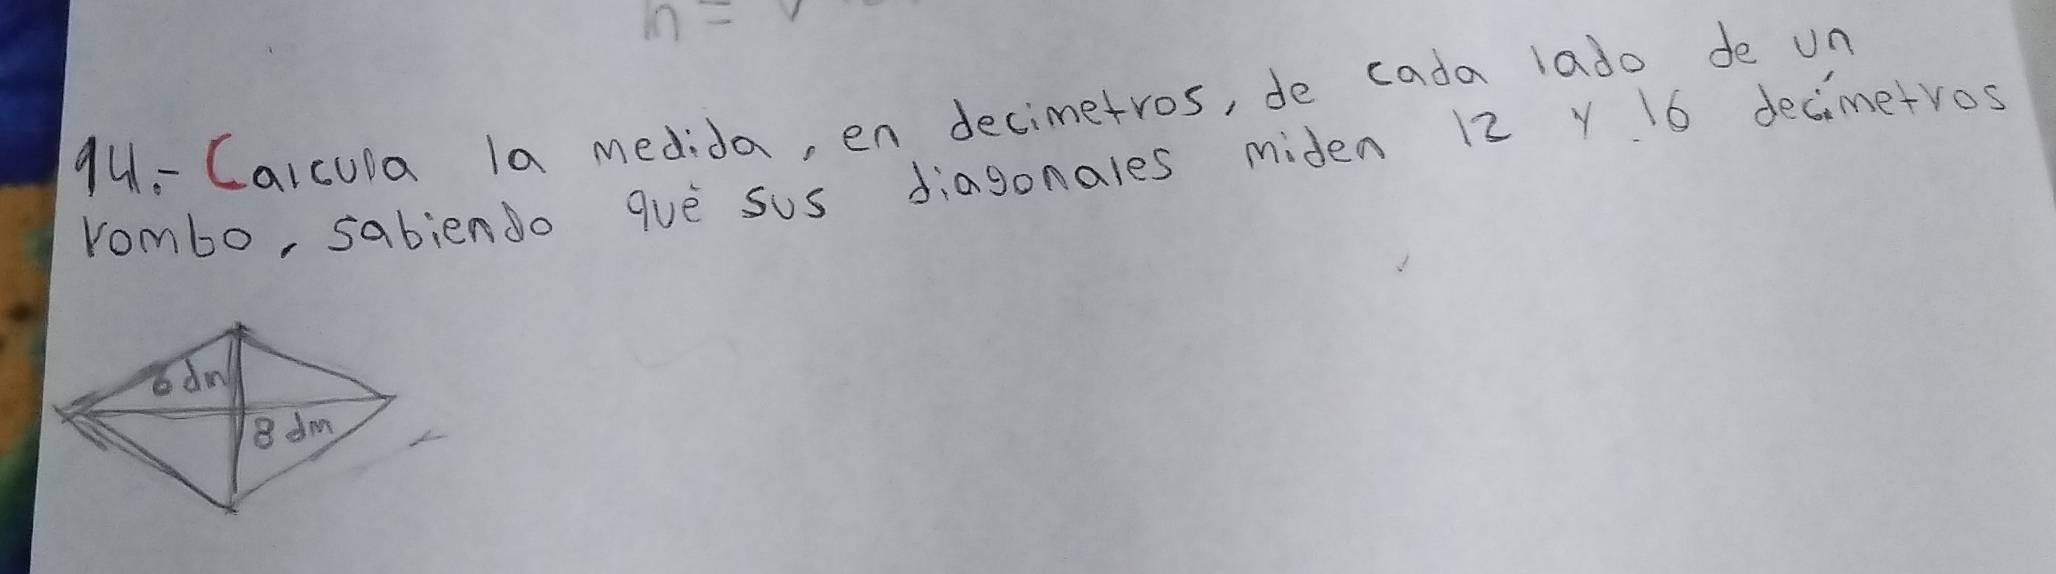 h = √
14.- Calcula la medida, en decimetros, de cada lado de un
rombo, sabiendo qué sus diagonales miden 12 y 16 decímetros
6 dm
8 dm